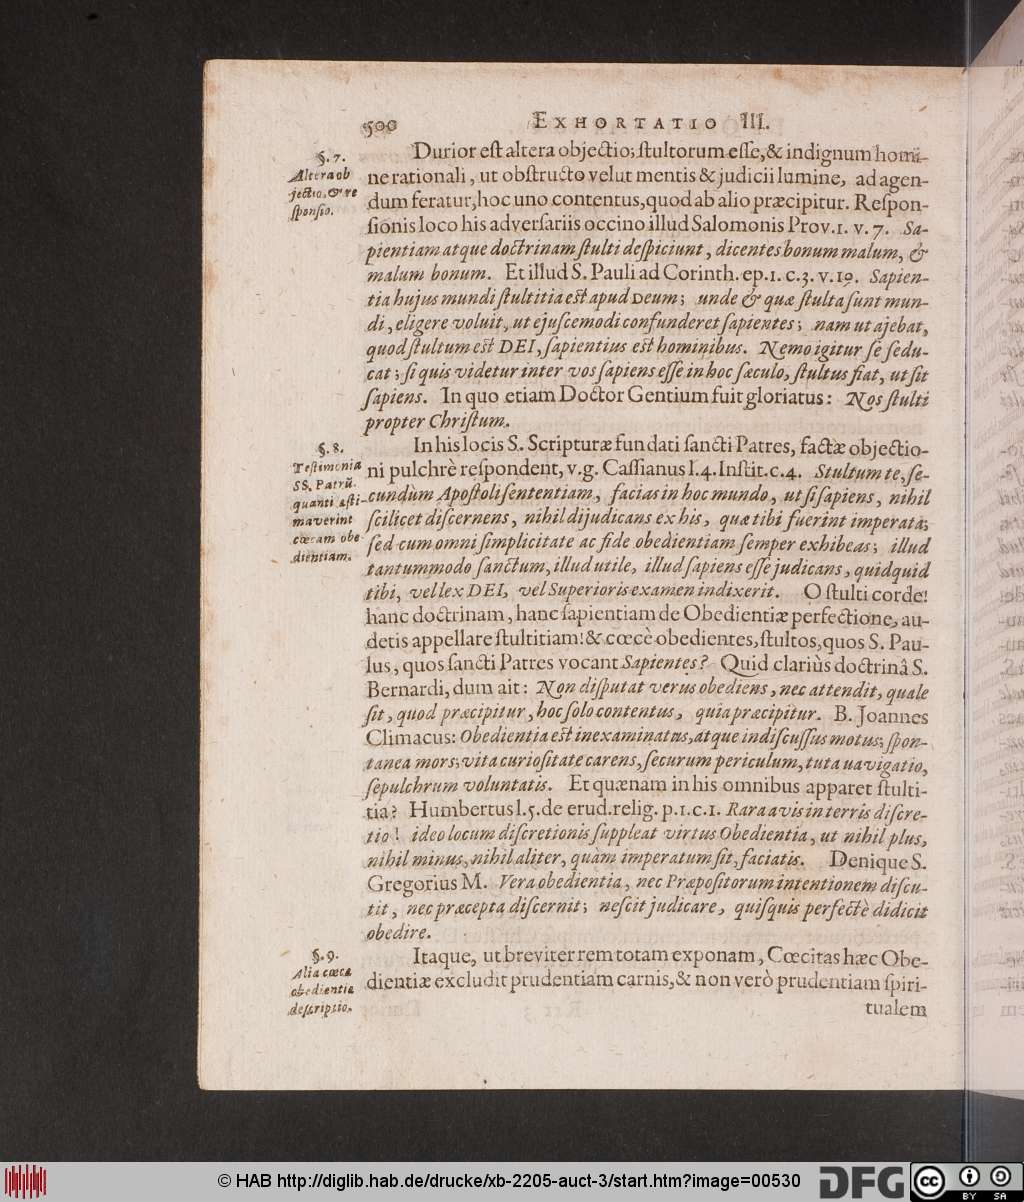 500 EXHORTATIO III.
§. 7.
Altera ob
jectio, & re
sponsio.
Durior est altera objectio; stultorum esse, & indignum homi-
ne rationali, ut obstructo velut mentis & judicii lumine, ad agen-
dum feratur, hoc uno contentus, quod ab alio præcipitur. Respon-
sionis loco his adversariis occino illud Salomonis Prov. 1. v. 7. Sa-
pientiam atque doctrinam stulti despiciunt, dicentes bonum malum, &
malum bonum. Et illud S. Pauli ad Corinth. ep. 1. c. 3. v. 19. Sapien-
tia hujus mundi stultitia est apud DEum; unde & quæ stulta sunt mun-
di, eligere voluit, ut ejuscemodi confunderet sapientes; nam ut ajebat,
quod stultum est DEI, sapientius est hominibus. Nemo igitur se sedu-
cat; si quis videtur inter vos sapiens esse in hoc sæculo, stultus fiat, ut sit
sapiens. In quo etiam Doctor Gentium fuit gloriatus: Nos stulti
propter Christum.
§. 8.
Testimonia
SS. Patrũ.
quanti æsti-
maverint
cœcam obe
dientiam.
In his locis S. Scripturæ fundati sancti Patres, factæ objectio-
ni pulchrè respondent, v. g. Cassianus l. 4. Instit. c. 4. Stultum te, se-
cundùm Apostoli sententiam, facias in hoc mundo, ut si sapiens, nihil
scilicet discernens, nihil dijudicans ex his, quæ tibi fuerint imperata;
sed cum omni simplicitate ac fide obedientiam semper exhibeas; illud
tantummodo sanctum, illud utile, illud sapiens esse judicans, quidquid
tibi, vel lex DEI, vel Superioris examen indixerit. O stulti corde!
hanc doctrinam, hanc sapientiam de Obedientiæ perfectione, au-
detis appellare stultitiam! & cœcè obedientes, stultos, quos S. Pau-
lus, quos sancti Patres vocant Sapientes? Quid clariùs doctrinâ S.
Bernardi, dum ait: Non disputat verus obediens, nec attendit, quale
sit, quod præcipitur, hoc solo contentus, quia præcipitur. B. Joannes
Climacus: Obedientia est inexaminatus, atque indiscussus motus; spon-
tanea mors; vita curiositate carens, securum periculum, tuta uavigatio,
sepulchrum voluntatis. Et quænam in his omnibus apparet stulti-
tia? Humbertus l. 5. de erud. relig. p. 1. c. 1. Rara avis in terris discre-
tio! ideo locum discretionis suppleat virtus Obedientia, ut nihil plus,
nihil minus, nihil aliter, quàm imperatum sit, faciatis. Denique S.
Gregorius M. Vera obedientia, nec Præpositorum intentionem discu-
tit, nec præcepta discernit; nescit judicare, quisquis perfectè didicit
obedire.
§. 9.
Alia cœcæ
obedientiæ
descriptio.
Itaque, ut breviter rem totam exponam, Cœcitas hæc Obe-
dientiæ excludit prudentiam carnis, & non verò prudentiam spiri-
tualem
© HAB http://diglib.hab.de/drucke/xb-2205-auct-3/start.htm?image=00530
DFG
cc BY SA